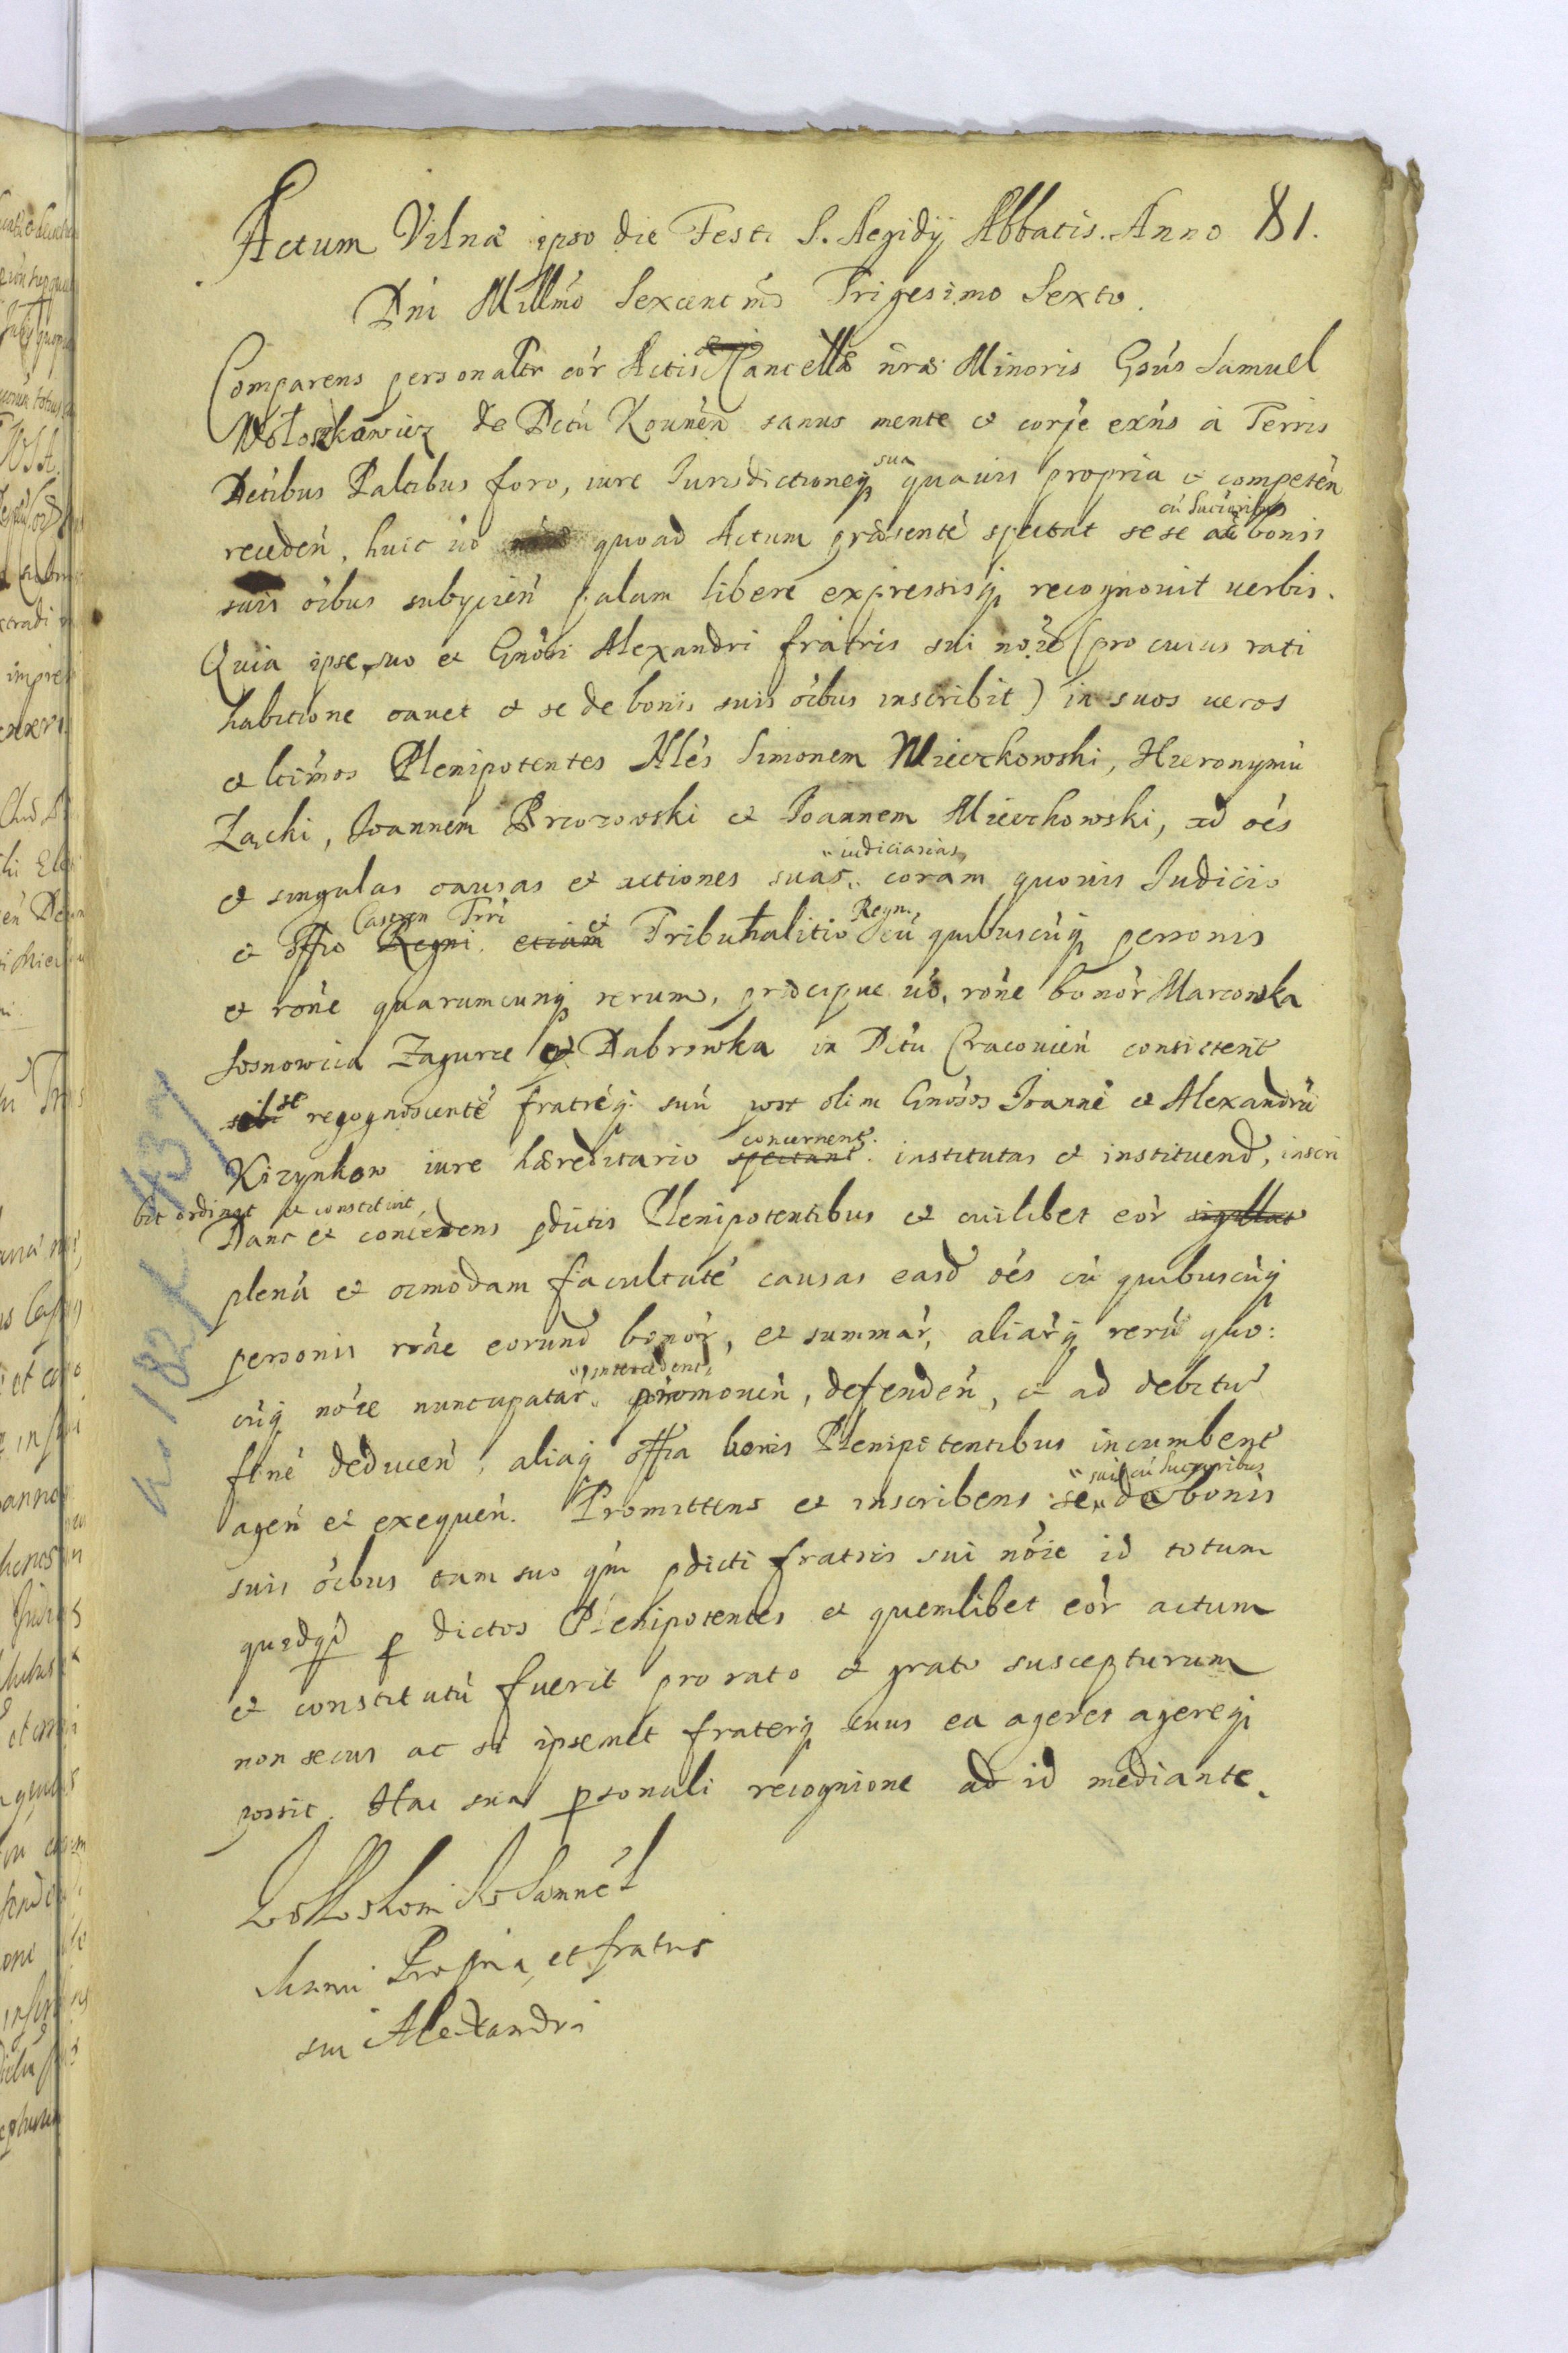 Actum Vilnæ ipso die Festi S. Aegidij Abbatis. Anno 81.
Dni Millmo Sexcentmo Trigesimo Sexto.
Comparens personaltr cor Actis Cancellæ nræ Minoris Gsus Samuel
Wołoszkowicz de Dctu Kounen sanus mente et corpe exns à Terris
Dctibus Paltibus foro, iure Iurisdictioneq sua quauis propria et competen
receden, huic uo quoad Actum præsente spectat sese ac bonis
cu sucioribus
suis oibus subijcien palam libere expressisq recognouit uerbis.
Quia ipse suo et Gnosi Alexandri fratris sui noie (pro cuius rati
habitione cauet et se de bonis suis oibus inscribit) in suos ueros
et ltimos Plenipotentes Nles Simonem Mieczkowski, Hieronymu
Zacki, Ioannem Brzozowski et Ioannem Mieczkowski, ad oes
et singulas causas et actiones suas iudiciarias coram quouis Iudicio
et Offio Regni Castren Trri etiam et Tribunalitio Regni cu quibuscuq personis
et rone quarumcunq rerum, præcipue uo, rone bonor Marcowka
Sosnowica Zagurze et Dabrowka in Dctu Cracouien consistent
se regognoscente fratreq suu post olim Gnosos Ioanne et Alexandru
Kizynkow iure hæreditario spectant concernent. institutas et instituend, inscri
bit ordinat et constituit
Dans et concedens pdictis Plenipotentibus et cuilibet eor
plena et oimodam facultate causas easd oes cu quibuscuq
personis rone eorund bonor, et summar, aliarq reru quo:
cuq noie nuncupatar intercedent, promouen, defenden, et ad debitu
fine deducen, aliaq offia bonis Plenipotentibus incumbent
agen et exequen. Promittens et inscribens se de bonis
suis cu sucioribus
suis oibus tam suo qm pdicti fratris sui noie id totum
quidqd p dictos Plenipotentes et quemlibet eor actum
et constitutu fuerit pro rato et grato suscepturum
non secus ac si ipsemet fraterq eius ea ageret agereq
possit. Hac sua psonali recognione ad id mediante.
Samuel
Manu Propria et fratris
sui Alexandri